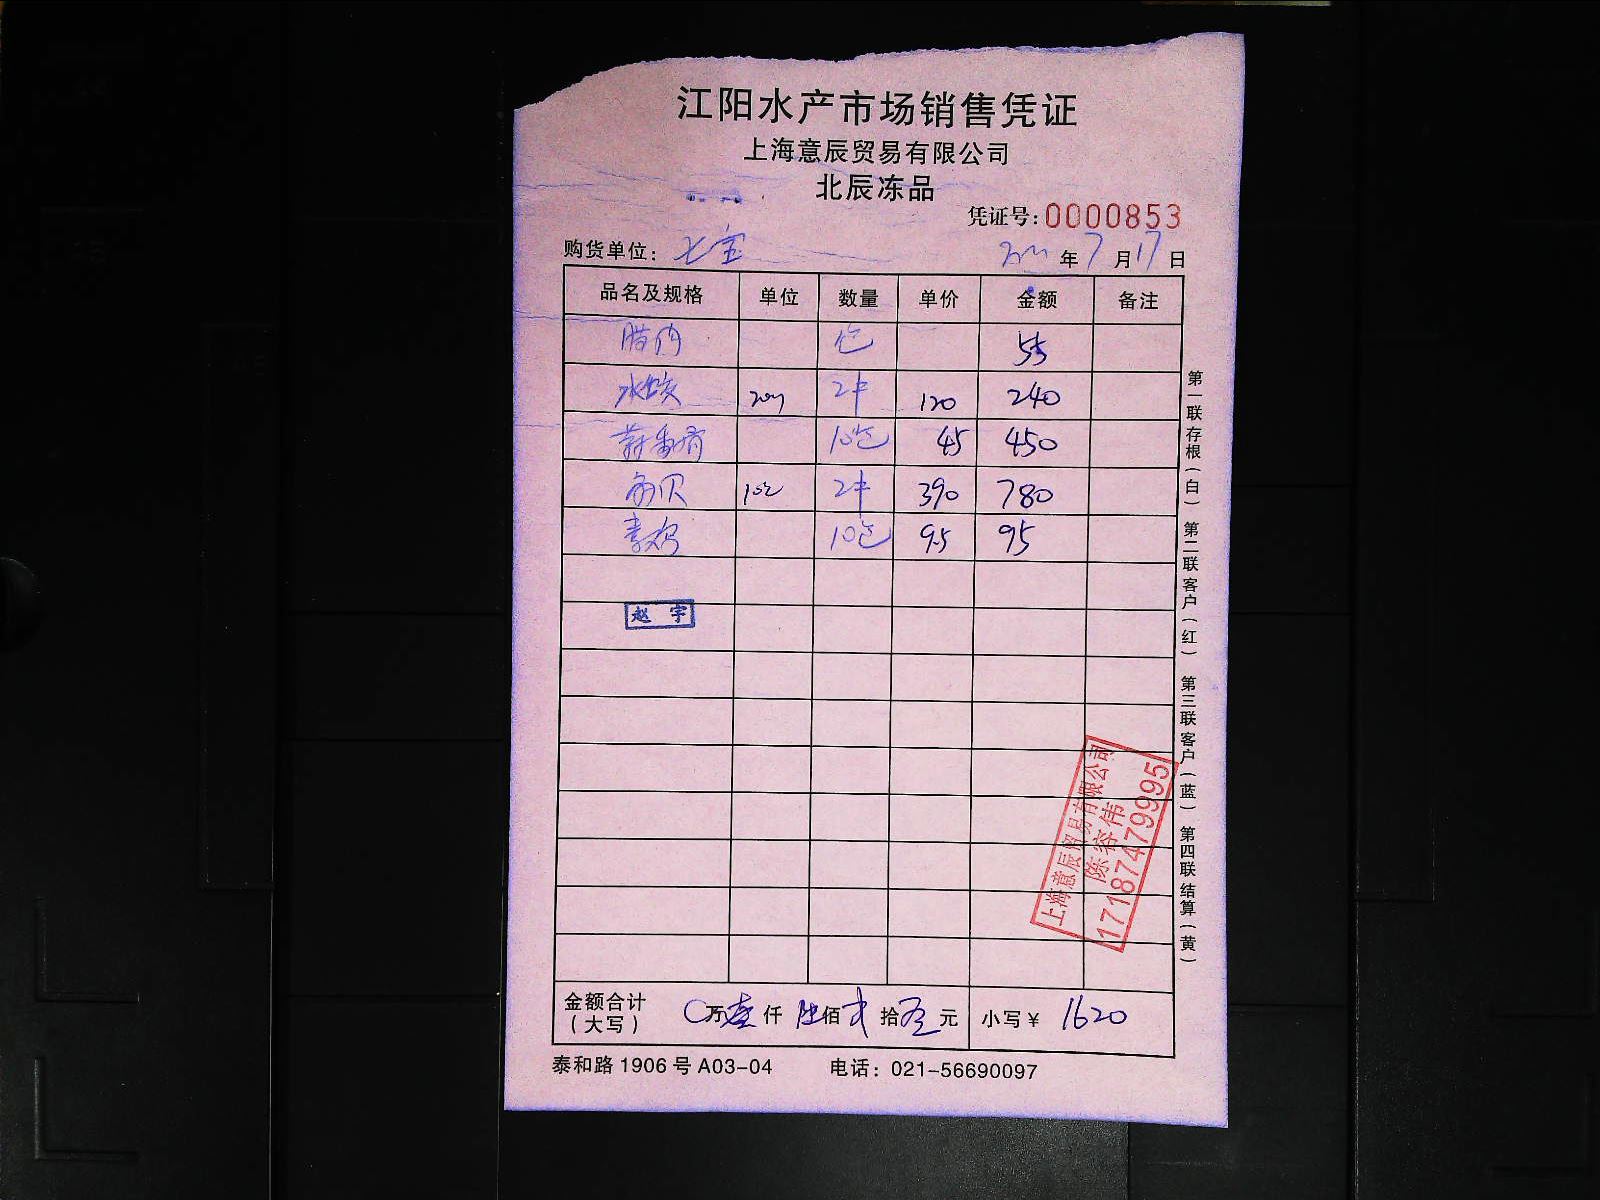 江阳水产市场销售凭证
上海意辰贸易有限公司
北辰冻品
凭证号:0000853
购货单位: 七宝 年 7 月 17 日
品名及规格 单位 数量 单价 金额 备注
腊肉 包 55
水饺 2件 120 240
10包 45 450
2件 390 780
素鸡 10包 9.5 95
赵 宇
上海意辰贸易有限公司
陈容伟
17187479995
金额合计 (大写) 0万壹仟陆佰贰拾零元 小写¥ 1620
泰和路1906号A03-04 电话: 021-56690097
第一联存根(白) 第二联客户(红) 第三联客户(蓝) 第四联结算(黄)